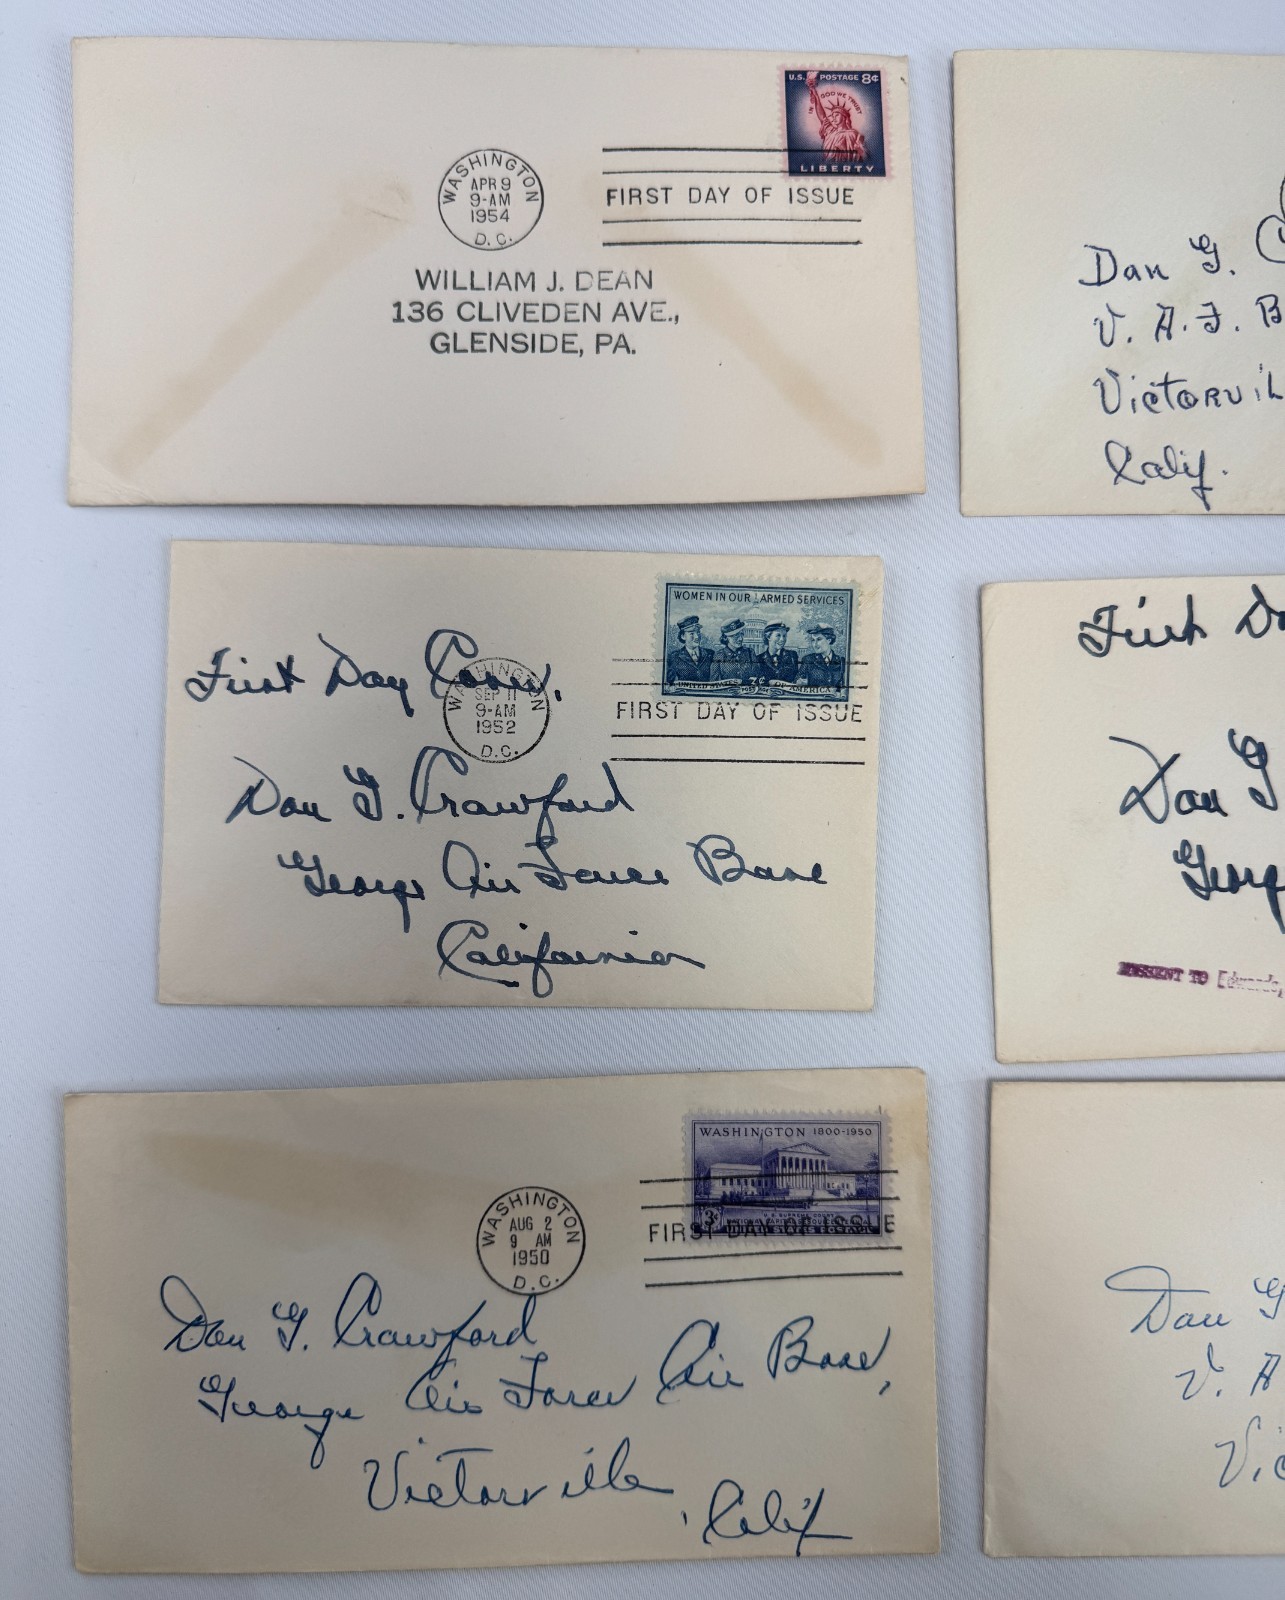 U.S. POSTAGE 8¢
IN GOD WE TRUST
LIBERTY
WASHINGTON
APR 9
9-AM
1954
D.C.
FIRST DAY OF ISSUE
WILLIAM J. DEAN
136 CLIVEDEN AVE.,
GLENSIDE, PA.
Dan G.
V. A. F. B
Victorvil
Calif.
WOMEN IN OUR ARMED SERVICES
UNITED STATES 3¢ OF AMERICA
First Day Cover.
WASHINGTON
SEP 11
9-AM
1952
D.C.
FIRST DAY OF ISSUE
Dan G. Crawford
George Air Force Base
California
First Da
Dan G
Georg
TO Edwards,
WASHINGTON 1800-1950
3¢
WASHINGTON
AUG 2
9 AM
1950
D.C.
FIRST DAY OF ISSUE
Dan G. Crawford
George Air Force Air Base,
Victorville, Calif
Dan G
V. A
Vic